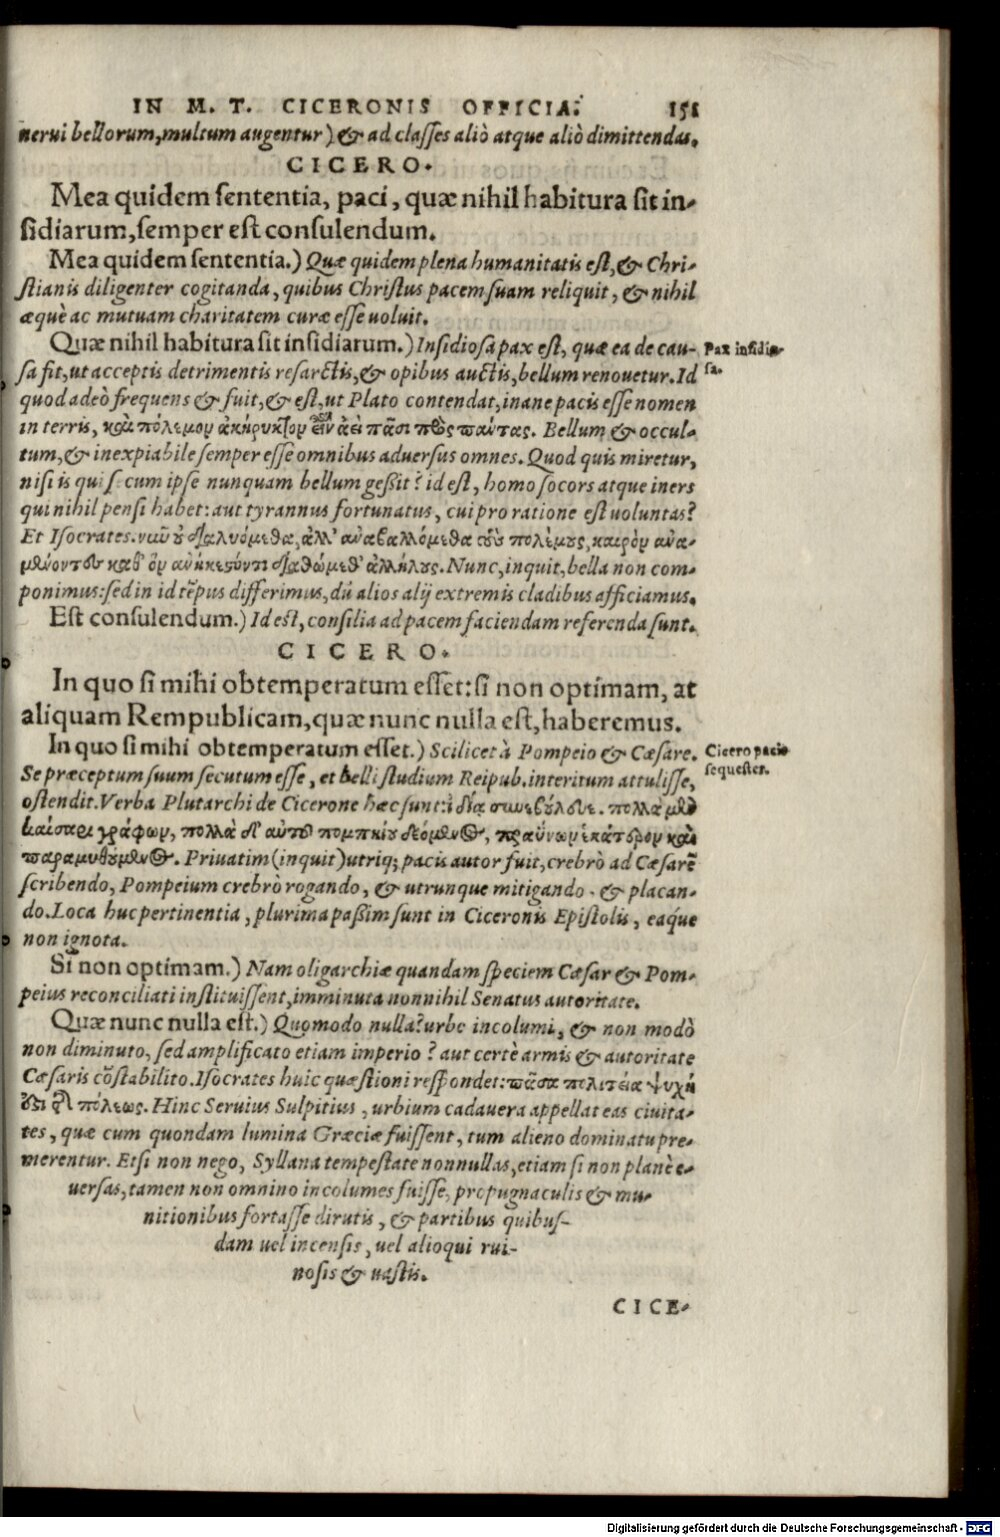 IN M. T. CICERONIS OFFICIA. 151
nerui bellorum, multum augentur) & ad classes aliò atque aliò dimittendas.
CICERO.
Mea quidem sententia, paci, quæ nihil habitura sit in-
sidiarum, semper est consulendum.
Mea quidem sententia.) Quæ quidem plena humanitatis est, & Chri-
stianis diligenter cogitanda, quibus Christus pacem suam reliquit, & nihil
æquè ac mutuam charitatem curæ esse uoluit.
Quæ nihil habitura sit insidiarum.) Insidiosa pax est, quæ ea de cau-
Pax insidio-
sa.
sa fit, ut acceptis detrimentis resarctis, & opibus auctis, bellum renouetur. Id
quod adeò frequens & fuit, & est, ut Plato contendat, inane pacis esse nomen
in terris, καὶ πόλεμον ἀκήρυκτον εἶναι ἀεὶ πᾶσι πρὸς πάντας. Bellum & occul-
tum, & inexpiabile semper esse omnibus aduersus omnes. Quod quis miretur,
nisi is qui secum ipse nunquam bellum geßit? id est, homo socors atque iners
qui nihil pensi habet: aut tyrannus fortunatus, cui pro ratione est uoluntas?
Et Isocrates. νῦν οὐ διαλυόμεθα, ἀλλ' ἀναβαλλόμεθα τοὺς πολέμους, καιρὸν ἀνα-
μένοντες καθ' ὃν ἀνήκεστόν τι διαθώμεθ' ἀλλήλους. Nunc, inquit, bella non com-
ponimus: sed in id tẽpus differimus, dũ alios alij extremis cladibus afficiamus.
Est consulendum.) Id est, consilia ad pacem faciendam referenda sunt.
CICERO.
In quo si mihi obtemperatum esset: si non optimam, at
aliquam Rempublicam, quæ nunc nulla est, haberemus.
In quo si mihi obtemperatum esset.) Scilicet à Pompeio & Cæsare.
Cicero pacis
sequester.
Se præceptum suum secutum esse, et belli studium Reipub. interitum attulisse,
ostendit. Verba Plutarchi de Cicerone hæc sunt: ἰδίᾳ συνεβούλευε. πολλὰ μὲν
καίσαρι γράφων, πολλὰ δ' αὐτοῦ πομπηίου δεόμενος, πραΰνων ἑκάτερον καὶ
παραμυθούμενος. Priuatim (inquit) utriq; pacis autor fuit, crebrò ad Cæsarẽ
scribendo, Pompeium crebrò rogando, & utrunque mitigando. & placan-
do. Loca huc pertinentia, plurima paßim sunt in Ciceronis Epistolis, eaque
non ignota.
Si non optimam.) Nam oligarchiæ quandam speciem Cæsar & Pom-
peius reconciliati instituissent, imminuta nonnihil Senatus autoritate.
Quæ nunc nulla est.) Quomodo nulla? urbe incolumi, & non modò
non diminuto, sed amplificato etiam imperio? aut certè armis & autoritate
Cæsaris cõstabilito. Isocrates huic quæstioni respondet: πᾶσα πολιτεία ψυχή
ἐστι τῆς πόλεως. Hinc Seruius Sulpitius, urbium cadauera appellat eas ciuita-
tes, quæ cum quondam lumina Græciæ fuissent, tum alieno dominatu pre-
merentur. Etsi non nego, Syllana tempestate nonnullas, etiam si non planè e-
uersas, tamen non omnino incolumes fuisse, propugnaculis & mu-
nitionibus fortasse dirutis, & partibus quibus-
dam uel incensis, uel alioqui rui-
nosis & uastis.
CICE-
Digitalisierung gefördert durch die Deutsche Forschungsgemeinschaft - DFG